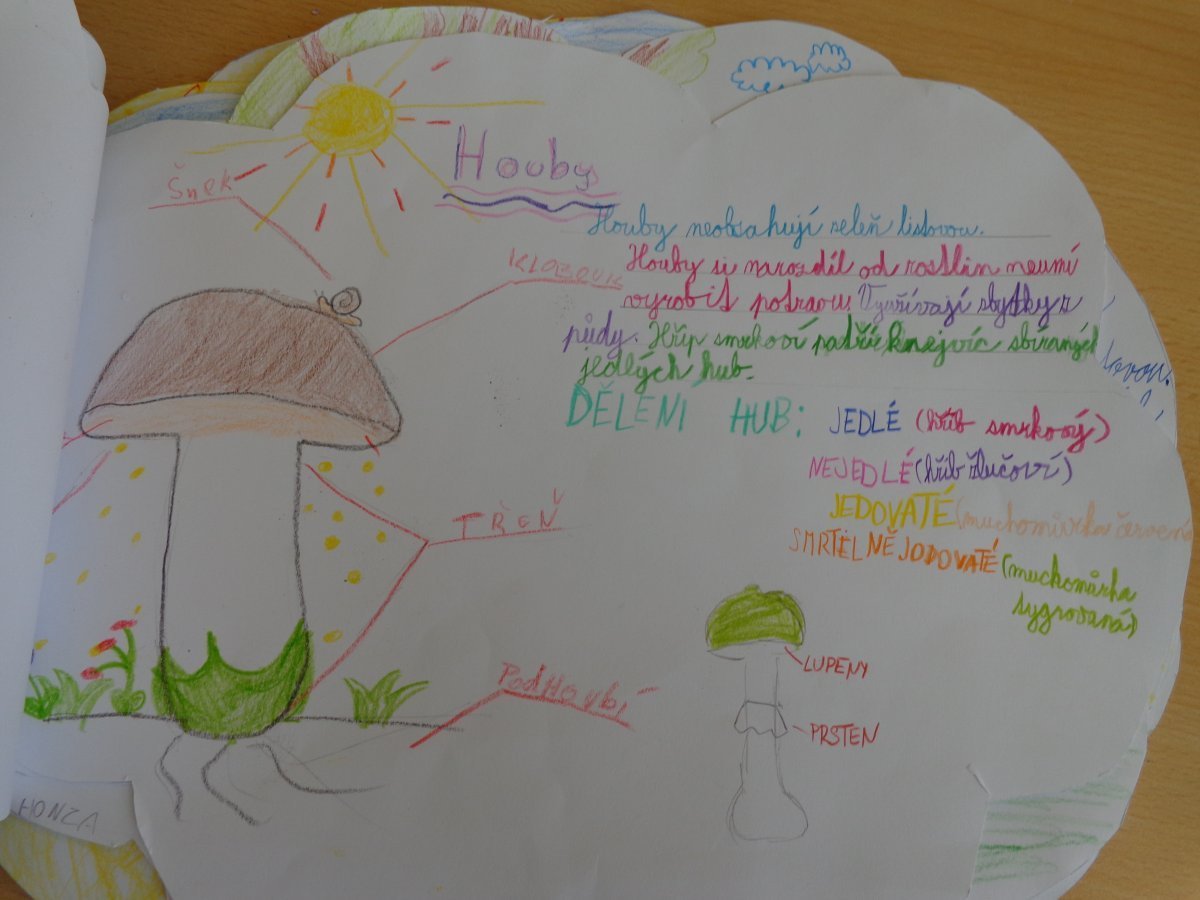 Houby
Šnek
Houby neobsahují zeleň listovou.
Klobouk
Houby si narozdíl od rostlin neumí
vyrobit potravu. Využívají zbytky z
půdy. Hřip smrkoví patří k nejvíc sbíraných
jedlých hub.
DĚLENI HUB: JEDLÉ (hřib smrkový)
NEJEDLÉ (hřib žlučoví)
JEDOVATÉ (muchomůrka červená
SMRTELNĚ JODOVATÉ (muchomůrka
tygrovaná)
TŘEŇ
PodHoubí
LUPENY
PRSTEN
HONZA